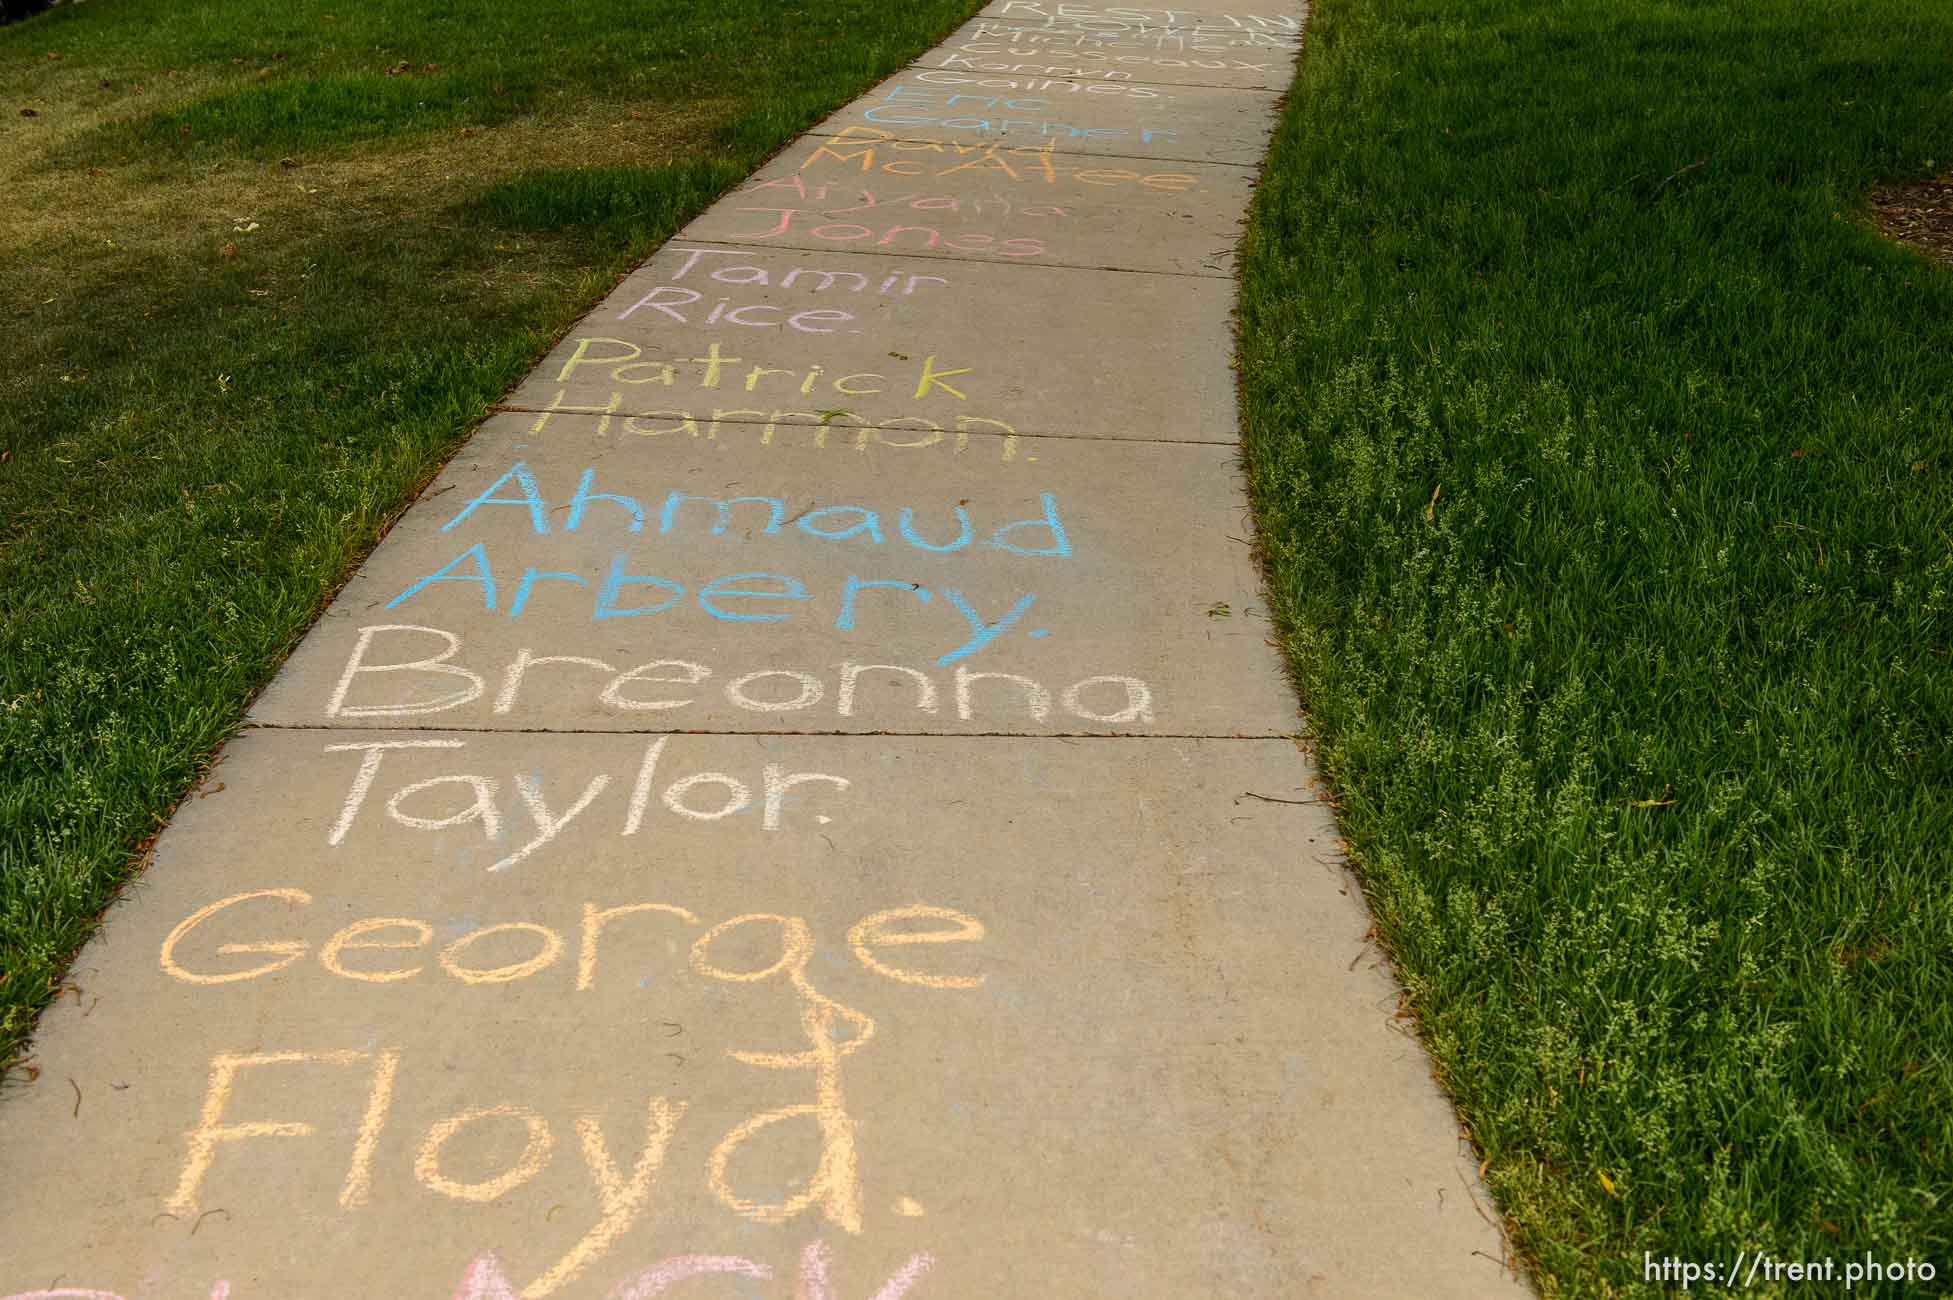 REST IN
POWER
Michelle
Cusseaux.
Korryn
Gaines.
Eric
Garner.
David
McAtee.
Aiyana
Jones
Tamir
Rice.
Patrick
Harmon.
Ahmaud
Arbery.
Breonna
Taylor.
George
Floyd.
BLACK
https://trent.photo